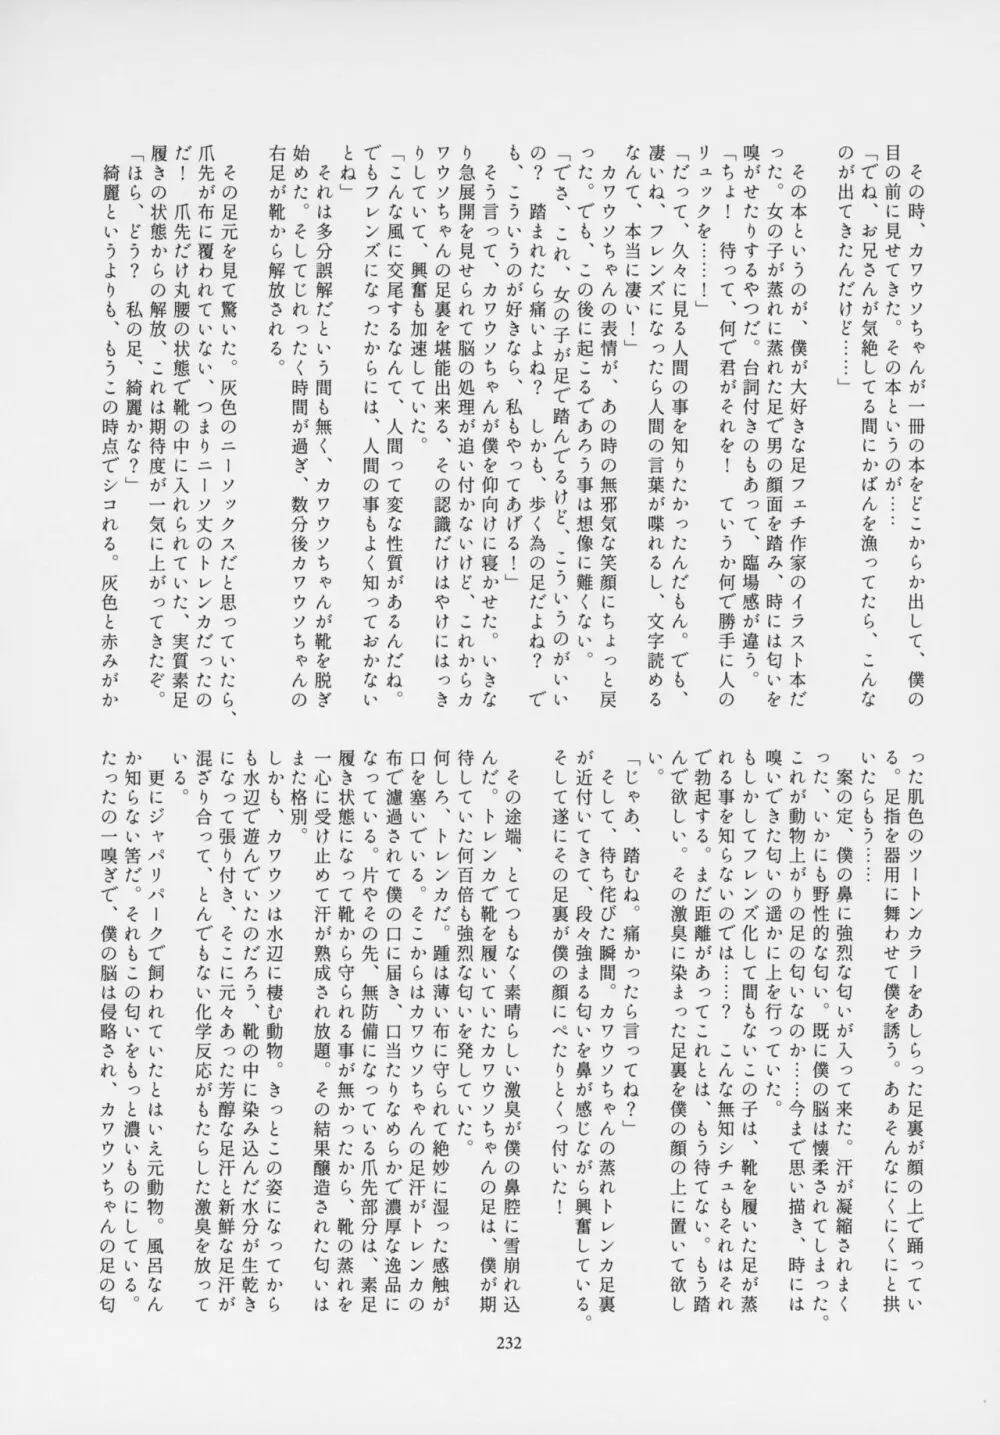 その時、カワウソちゃんが一冊の本をどこからか出して、僕の
目の前に見せてきた。その本というのが……
「でね、お兄さんが気絶してる間にかばんを漁ってたら、こんな
のが出てきたんだけど……」
その本というのが、僕が大好きな足フェチ作家のイラスト本だ
った。女の子が蒸れに蒸れた足で男の顔面を踏み、時には匂いを
嗅がせたりするやつだ。台詞付きのもあって、臨場感が違う。
「ちょ！　待って、何で君がそれを！　ていうか何で勝手に人の
リュックを……！」
「だって、久々に見る人間の事を知りたかったんだもん。でも、
凄いね、フレンズになったら人間の言葉が喋れるし、文字読める
なんて、本当に凄い！」
カワウソちゃんの表情が、あの時の無邪気な笑顔にちょっと戻
った。でも、この後に起こるであろう事は想像に難くない。
「でさ、これ、女の子が足で踏んでるけど、こういうのがいい
の？　踏まれたら痛いよね？　しかも、歩く為の足だよね？　で
も、こういうのが好きなら、私もやってあげる！」
そう言って、カワウソちゃんが僕を仰向けに寝かせた。いきな
り急展開を見せられて脳の処理が追い付かないけど、これからカ
ワウソちゃんの足裏を堪能出来る、その認識だけはやけにはっき
りしていて、興奮も加速していた。
「こんな風に交尾するなんて、人間って変な性質があるんだね。
でもフレンズになったからには、人間の事もよく知っておかない
とね」
それは多分誤解だという間も無く、カワウソちゃんが靴を脱ぎ
始めた。そしてじれったく時間が過ぎ、数分後カワウソちゃんの
右足が靴から解放される。
その足元を見て驚いた。灰色のニーソックスだと思っていたら、
爪先が布に覆われていない、つまりニーソ丈のトレンカだったの
だ！　爪先だけ丸腰の状態で靴の中に入れられていた、実質素足
履きの状態からの解放、これは期待度が一気に上がってきたぞ。
「ほら、どう？　私の足、綺麗かな？」
綺麗というよりも、もうこの時点でシコれる。灰色と赤みがか
った肌色のツートンカラーをあしらった足裏が顔の上で踊ってい
る。足指を器用に舞わせて僕を誘う。あぁそんなにくにくにと拱
いたらもう……
案の定、僕の鼻に強烈な匂いが入って来た。汗が凝縮されまく
った、いかにも野性的な匂い。既に僕の脳は懐柔されてしまった。
これが動物上がりの足の匂いなのか……今まで思い描き、時には
嗅いできた匂いの遥かに上を行っていた。
もしかしてフレンズ化して間もないこの子は、靴を履いた足が蒸
れる事を知らないのでは……？　こんな無知シチュもそれはそれ
で勃起する。まだ距離があってこれとは、もう待てない。もう踏
んで欲しい。その激臭に染まった足裏を僕の顔の上に置いて欲し
い。
「じゃあ、踏むね。痛かったら言ってね？」
そして、待ち侘びた瞬間。カワウソちゃんの蒸れトレンカ足裏
が近付いてきて、段々強まる匂いを鼻が感じながら興奮している。
そして遂にその足裏が僕の顔にぺたりとくっ付いた！
その途端、とてつもなく素晴らしい激臭が僕の鼻腔に雪崩れ込
んだ。トレンカで靴を履いていたカワウソちゃんの足は、僕が期
待していた何百倍も強烈な匂いを発していた。
何しろ、トレンカだ。踵は薄い布に守られて絶妙に湿った感触が
口を塞いでいる。そこからはカワウソちゃんの足汗がトレンカの
布で濾過されて僕の口に届き、口当たりなめらかで濃厚な逸品に
なっている。片やその先、無防備になっている爪先部分は、素足
履き状態になって靴から守られる事が無かったから、靴の蒸れを
一心に受け止めて汗が熟成され放題。その結果醸造された匂いは
また格別。
しかも、カワウソは水辺に棲む動物。きっとこの姿になってから
も水辺で遊んでいたのだろう、靴の中に染み込んだ水分が生乾き
になって張り付き、そこに元々あった芳醇な足汗と新鮮な足汗が
混ざり合って、とんでもない化学反応がもたらした激臭を放って
いる。
更にジャパリパークで飼われていたとはいえ元動物。風呂なん
か知らない筈だ。それもこの匂いをもっと濃いものにしている。
たったの一嗅ぎで、僕の脳は侵略され、カワウソちゃんの足の匂
232